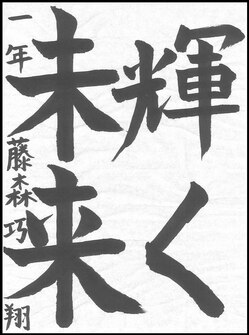 輝く
未来
一年 藤森巧翔